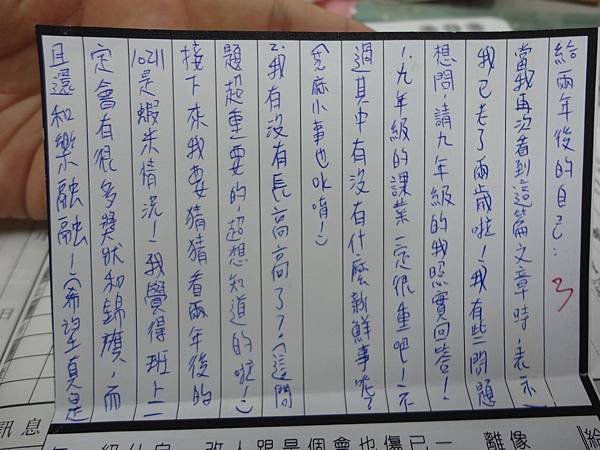 給兩年後的自己:
3
當我再次看到這篇文章時,表示
我已老了兩歲啦!我有些問題
想問,請九年級的我照實回答!
1.九年級的課業一定很重吧!不
過其中有沒有什麼新鮮事呢?
芝麻小事也ok唷!:)
2.我有沒有長高高了?(這問
題超重要的超想知道的啦!:)
接下來我要猜猜看兩年後的
1021是蝦米情況!我覺得班上一
定會有很多獎狀和錦旗,而
且還和樂融融!(希望真是
訊息
改人跟是個會也傷已一 離像
給